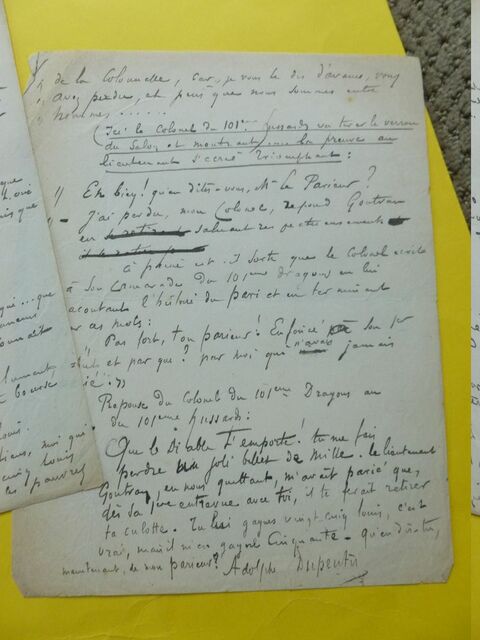 de la Colonnelle, car, je vous le dis d'avance, vous
avez perdu, et puisque nous sommes entre
hommes......
(Ici le Colonel du 101ème Hussards va tirer le verrou
du Salon et montrant la preuve au
lieutenant s'écrie triomphant :
"En bien! qu'en dites-vous, Mr le Parieur?
- J'ai perdu, mon Colonel, répond Goutran
en saluant respectueusement
à peine est-il sorti que le Colonel écrit
à son Camarade du 101ème dragons en lui
racontant l'histoire du pari et en terminant
par ces mots:
"Pas fort, ton parieur! Enfoncé ton
et par que? par moi qui n'avais jamais
parié!"
Reponse du Colonel du 101eme Dragons au
du 101eme Hussards:
Que le Diable t'emporte! tu me fais
perdre un joli billet de Mille. Le lieutenant
Goutran, en nous quittant, m'avait parié que,
dès sa 1ère entrevue avec toi, il te ferait retirer
ta culotte. Tu lui gagnes vingt-cinq louis, c'est
vrai, mais il m'en gagne Cinquante - qu'en dis-tu,
maintenant, de mon parieur? Adolphe Dupentis
que
qui... que
moi qui
cinq louis
les pauvres